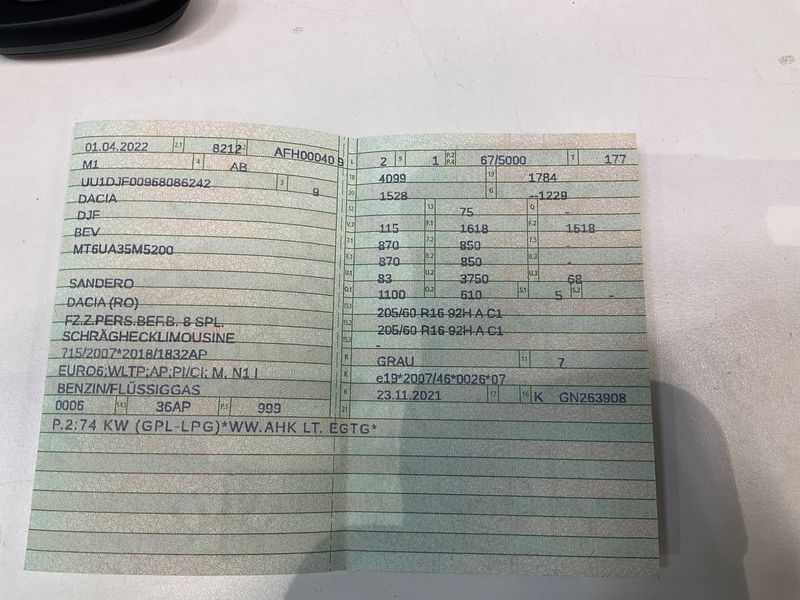 01.04.2022 2.1 8212 2.2 AFH00040 9
M1 4 AB
UU1DJF00968086242 3 9
DACIA
DJF
BEV
MT6UA35M5200
SANDERO
DACIA (RO)
FZ.Z.PERS.BEF.B. 8 SPL.
SCHRÄGHECKLIMOUSINE
715/2007*2018/1832AP
EURO6;WLTP;AP;PI/CI; M, N1 I
BENZIN/FLÜSSIGGAS
0006 14.1 36AP P.1 999
L 2 9 1 P.2 P.4 67/5000 T 177
18 4099 19 1784
20 1528 G --1229
12 13 75 Q -
V.7 115 F.1 1618 F.2 1618
7.1 870 7.2 850 7.3 -
8.1 870 8.2 850 8.3 -
U.1 83 U.2 3750 U.3 68
O.1 1100 O.2 610 S.1 5 S.2 -
15.1 205/60 R16 92H A C1
15.2 205/60 R16 92H A C1
15.3 -
R GRAU 11 7
K e19*2007/46*0026*07
6 23.11.2021 17 16 K GN263908
21
P.2:74 KW (GPL-LPG)*WW.AHK LT. EGTG*